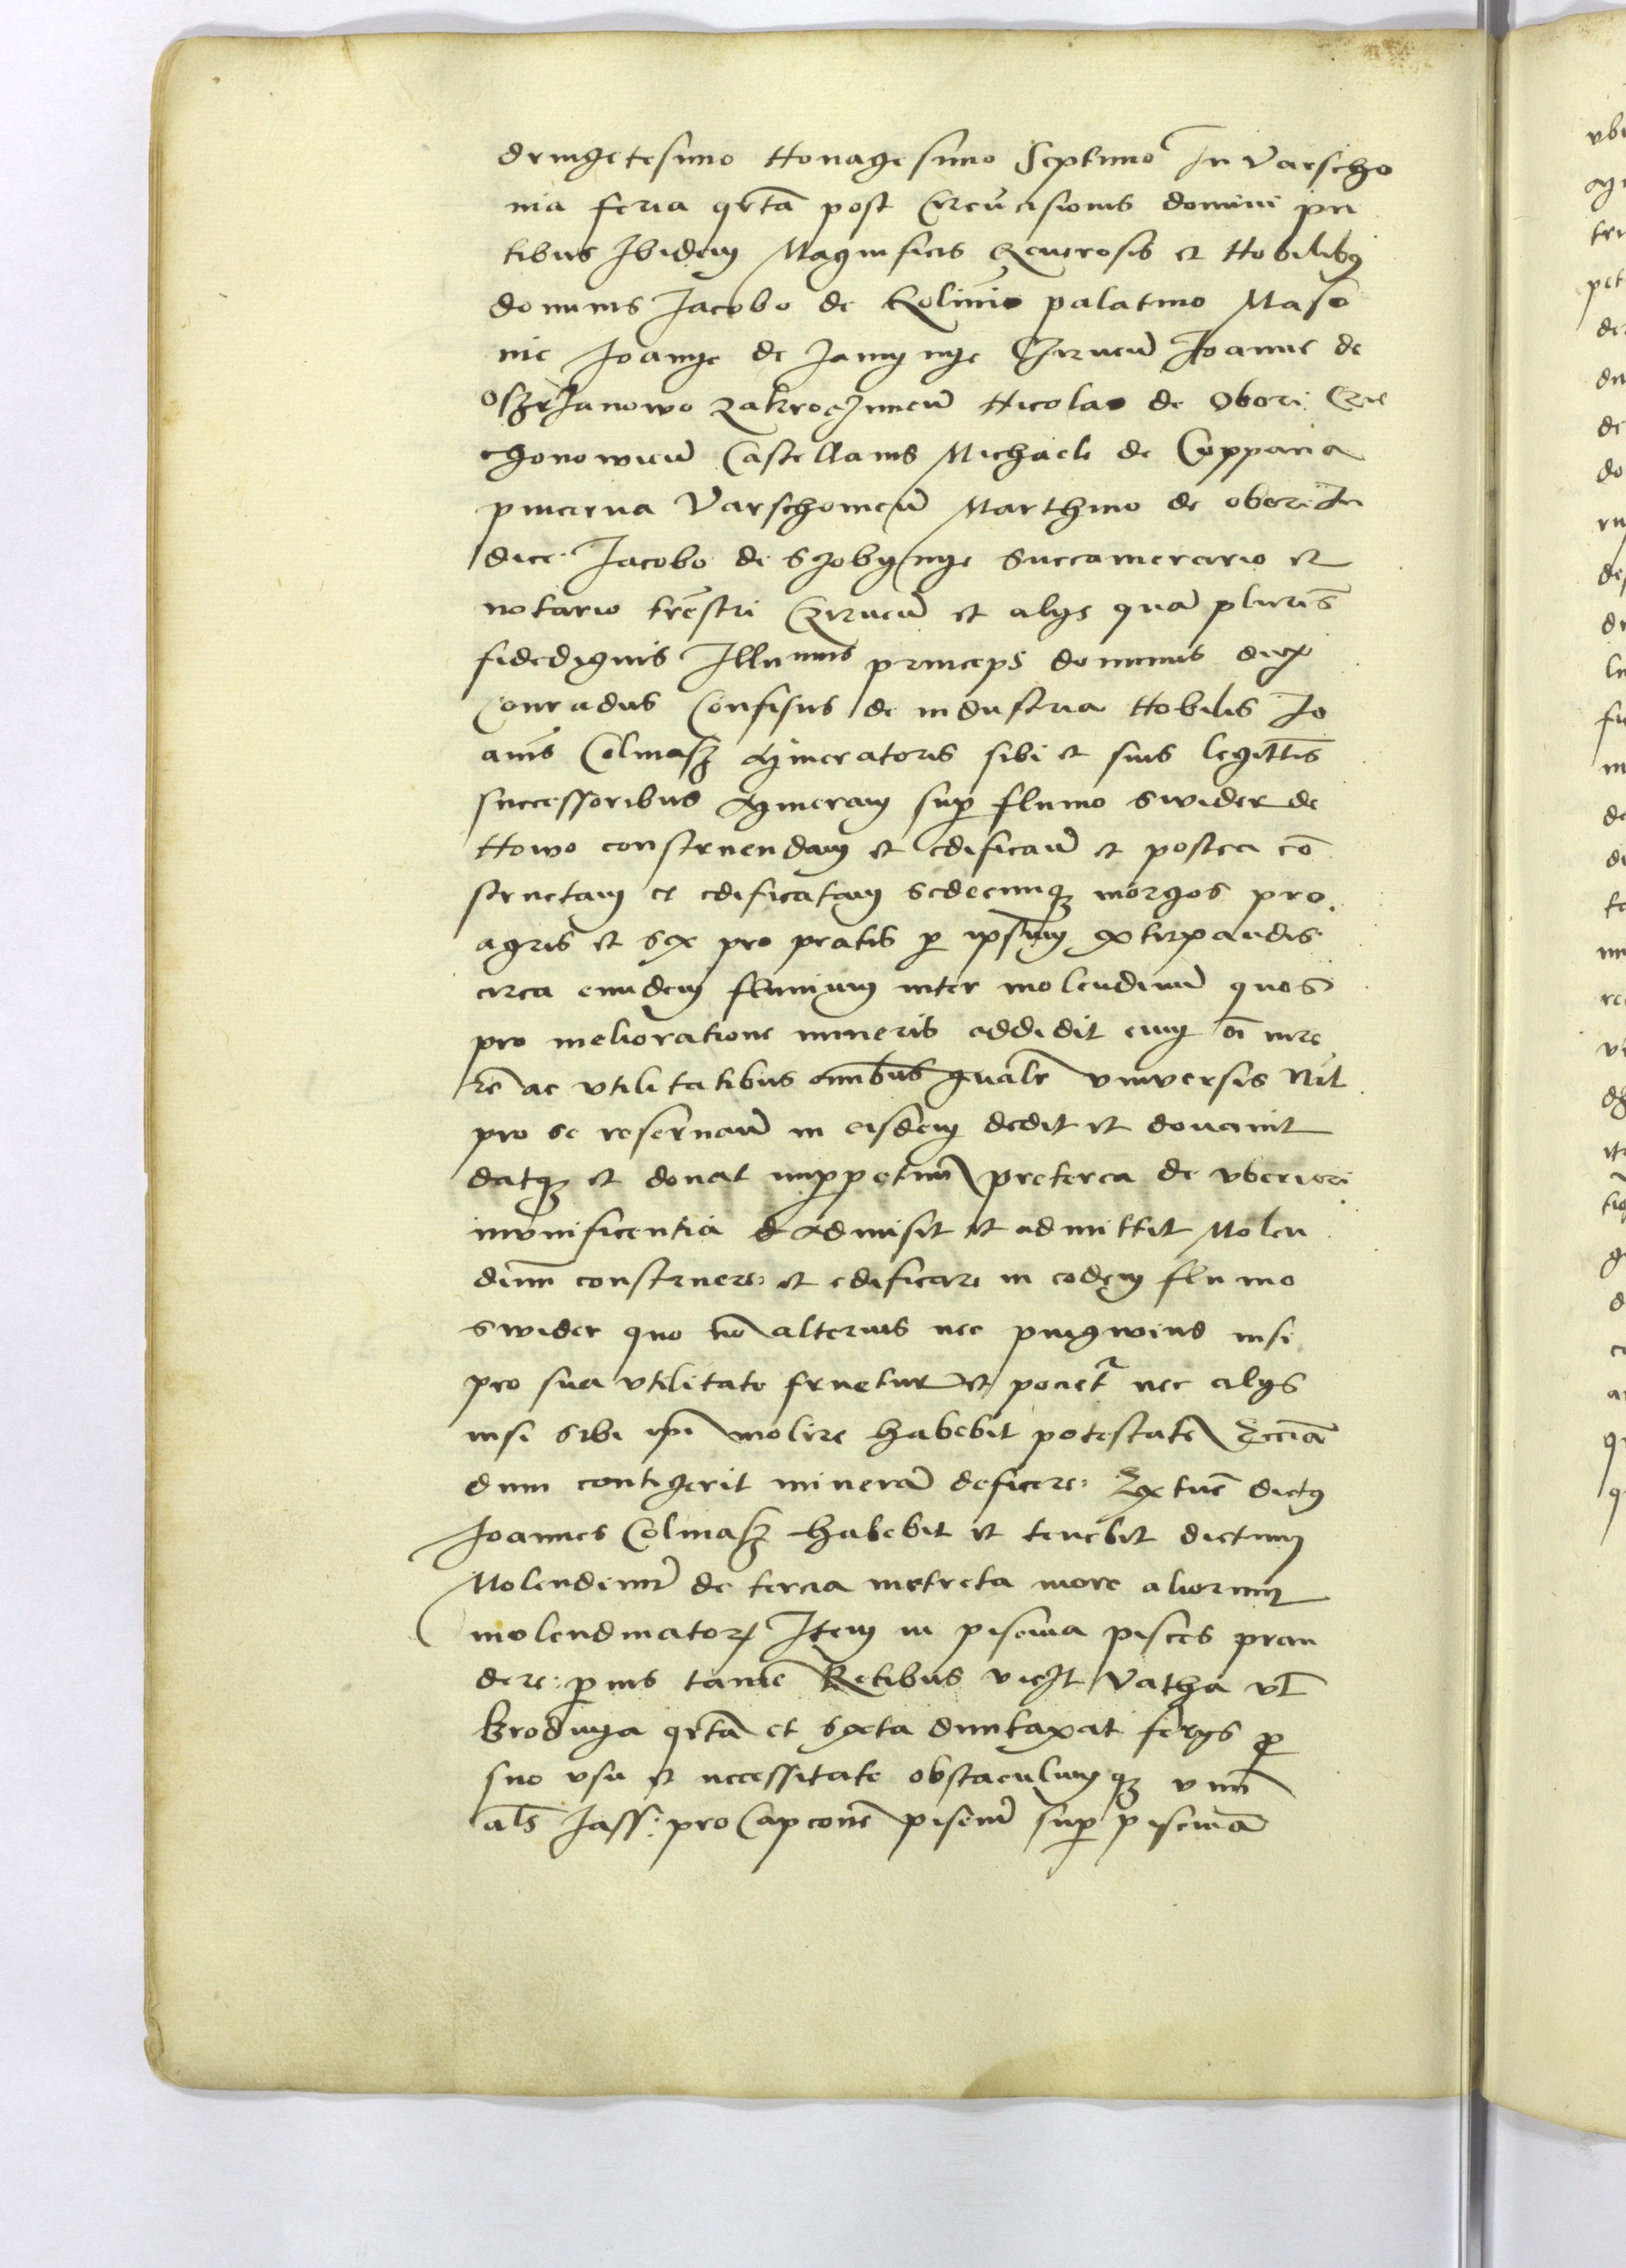 dringetesimo Nonagesimo Septimo In Varscho
nia feria qrta post Circucisionis domini pn
tibus Ibidem Magnificis Generosis et Nobilibus
dominis Jacobo de Golimio palatino Maso
nie Joanne de Jamynye Czirnen Joanne de
Oszczianowo Zakroczimen Nicolao de Obori Cie
chonowien Castellanis Michaele de Coppana
pincerna Varschonien Marthino de obori Ju
dice Jacobo de Szobynye Succamerario et
notario trestri Czirnen et alys qua pluris
fidedignis Illumus princeps dominus dux
Conradus Confisus de industria Nobilis Jo
anis Colmasz Mineratoris sibi et suis legittis
successoribus Mineram sup flumo Swider de
Nowo construendam et edifican et postea co
structam et edificatam Sedecimqz morgos pro
agris et sex pro pratis p ipsum extirpandis
circa eiudem flumium inter molendinu quos
pro melioratione mineris addidit cum oi iure
re ac vtilitatibus omnibus gnale vniversis Nil
pro se reservan in eisdem dedit et donavit
datqz et donat imppetuu preterea de vberiori
munificentia admisit et admittit Molen
dinu construere et edificare in eodem flumo
Swider quo no alterius nec pingwius nisi
pro sua vtilitate fruetur et pocietr nec alys
nisi sibi ipi molire habebit potestate Ecciam
dum contigerit minera deficere Extuc dictus
Joannes Colmasz habebit et tenebit dictum
Molendinu de tercia metreta more aliorum
molendinatorum Item in piscina pisces pran
dere p nis tame Retibus viczt Vatha vl
Brodnya qrta et sexta duntaxat ferys p
suo vsu et necessitate obstaculumqz vnu
als Jass: pro Capcone pisciu sup piscina